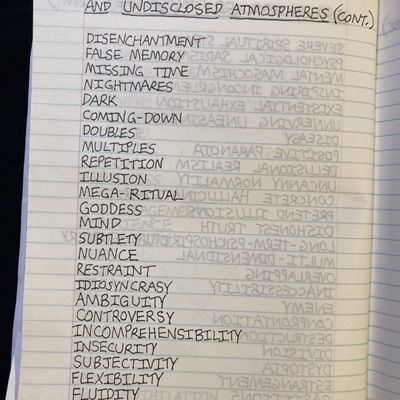 AND UNDISCLOSED ATMOSPHERES (CONT.)
DISENCHANTMENT
FALSE MEMORY
MISSING TIME
NIGHTMARES
DARK
COMING-DOWN
DOUBLES
MULTIPLES
REPETITION
ILLUSION
MEGA-RITUAL
GODDESS
MIND
SUBTLETY
NUANCE
RESTRAINT
IDIOSYNCRASY
AMBIGUITY
CONTROVERSY
INCOMPREHENSIBILITY
INSECURITY
SUBJECTIVITY
FLEXIBILITY
FLUIDITY